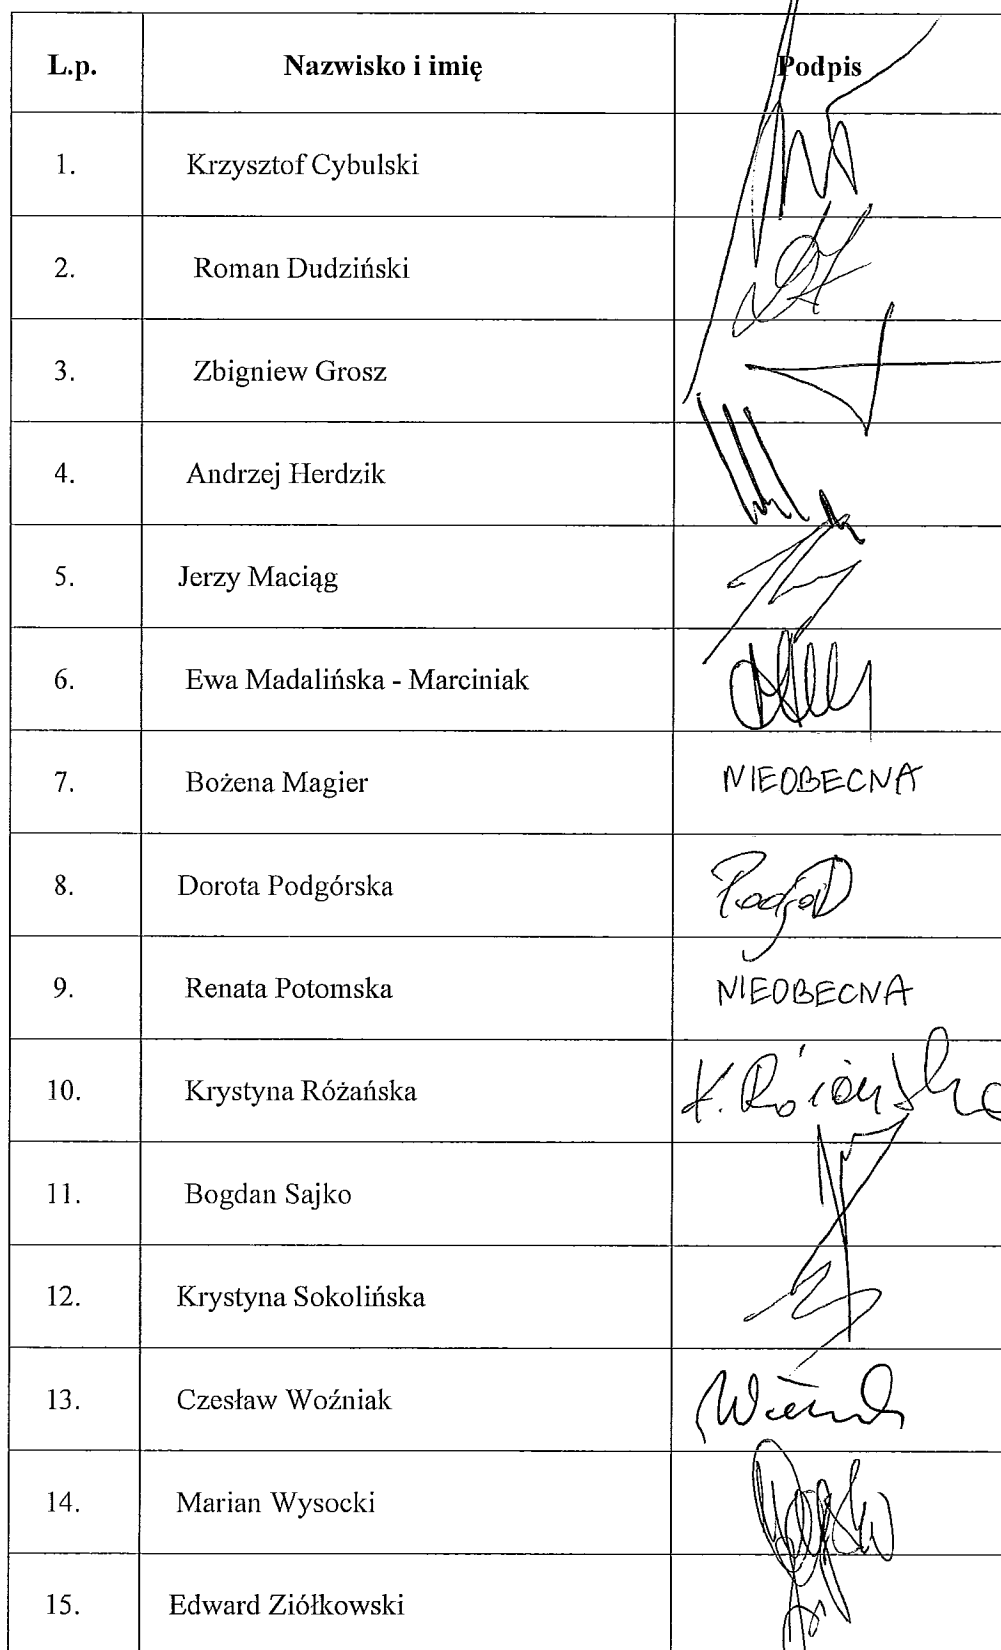 L.p. Nazwisko i imię Podpis
1. Krzysztof Cybulski
2. Roman Dudziński
3. Zbigniew Grosz
4. Andrzej Herdzik
5. Jerzy Maciąg
6. Ewa Madalińska - Marciniak
7. Bożena Magier NIEOBECNA
8. Dorota Podgórska
9. Renata Potomska NIEOBECNA
10. Krystyna Różańska K. Różańska
11. Bogdan Sajko
12. Krystyna Sokolińska
13. Czesław Woźniak
14. Marian Wysocki
15. Edward Ziółkowski